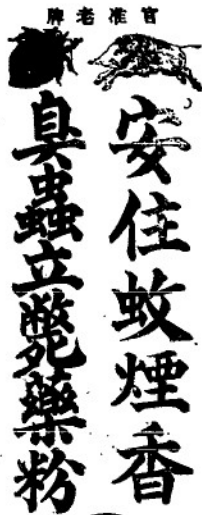 官准老牌
安住蚊煙香
臭蟲立斃藥粉